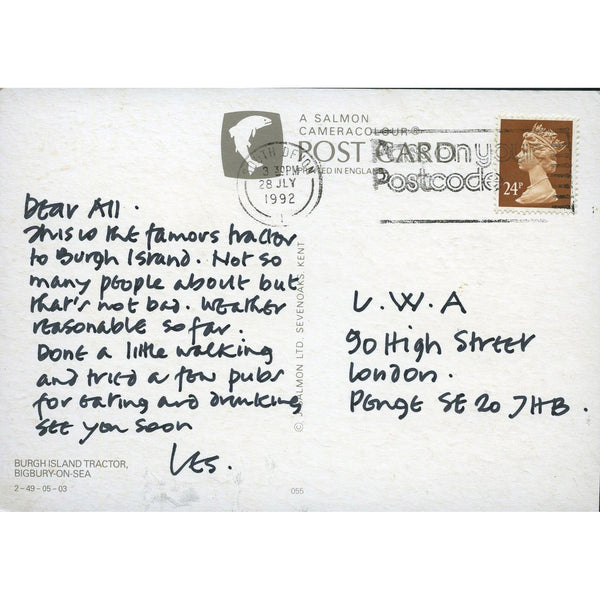 A SALMON
CAMERACOLOUR®
POST CARD
PRINTED IN ENGLAND
3 30PM
28 JLY
1992
Pass on your
Postcode
24P
Dear All.
This is the famous tractor
to Burgh Island. Not so
many people about but
that's not bad. Weather
reasonable so far.
Done a little walking
and tried a few pubs
for eating and drinking
See you soon
Les.
U.W.A
90 High Street
London.
PENGE SE20 7HB.
© J SALMON LTD. SEVENOAKS KENT
BURGH ISLAND TRACTOR,
BIGBURY-ON-SEA
2-49-05-03
055